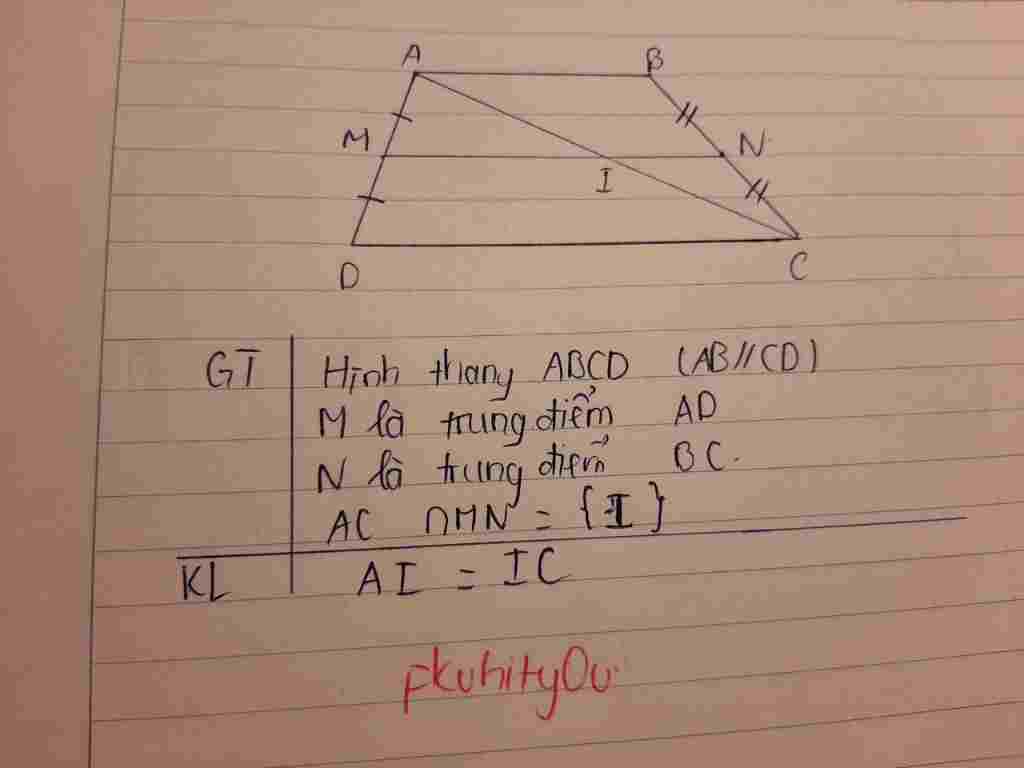 A B
M N
I
D C
GT Hình thang ABCD (AB//CD)
M là trung điểm AD
N là trung điểm BC.
AC ∩ MN = {I}
KL AI = IC